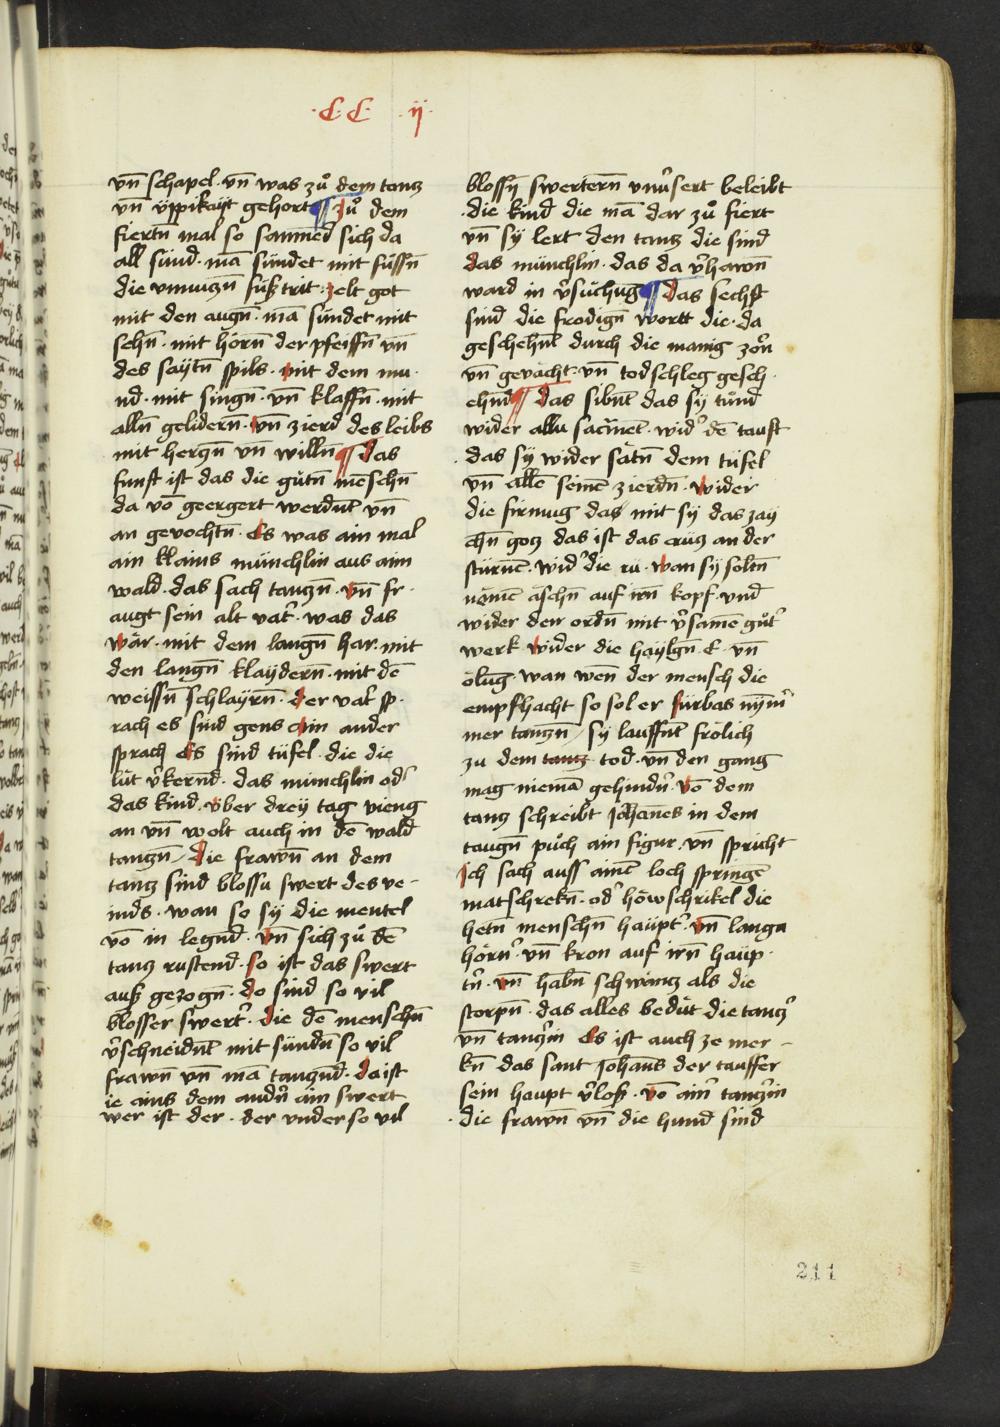 ·C·C· ·ij·
vn̄ schapel· vn̄ was zů dem tantz
vn̄ v̈ppikaÿt gehort ¶ Zů dem
fiertn̄ mal so sam̄ed sich da
all sünd· mā sündet mit füssn̄
die vmuiczn̄ fůß trit· zelt got
mit den augn̄· mā sündet mit
sehn̄· mit hörn̄ der pfeiffn̄ vn̄
des saytn̄ spils· mit dem mu·
nd· mit singn̄· vn̄ klaffn̄· mit
alln̄ gelidern̄· vn̄ zierd des leibs
mit herczn̄ vn̄ willn̄ ¶ das
funft ist das die gůtn̄ mēschn̄
da vō geergert werdn̄t vn̄
an gevochtn̄· Es was ain mal
ain klains münchlin aus aim
wald· das sach tanczn̄· vn̄ fr·
augt sein alt vat̉· was das
wär· mit dem langn̄ har· mit
den langn̄ klaÿdern̄· mit dē
weissn̄ schlaÿrn̄· der vat̉ sp·
rach es sind gens ain ander
sprach Es sind tüfel· die die
lüt v̉kernd̄· das münchlin od̉
das kind· v̈ber dreÿ tag vieng
an vn̄ wolt auch in dē wald
tanczn̄· die frawn̄ an dem
tancz sind blossu swert des ve-
inds· wan so sÿ die mentel
vō in legnd̄· vn̄ sich zů dē
tancz rustend· so ist das swert
auß gezogn̄· do sind so vil
blosser swert̉· die dē menschn̄
v̉schneidn̄t mit sündn̄ so vil
frawn̄ vn̄ mā tanczn̄d· da ist
ie ains dem andn̄ ain swert
wer ist der· der vnder so vil
blossn̄ swertern̄ vnv̉sert beleibt
die kind die mā dar zů fiert
vn̄ sÿ lert den tancz die sind
das münchlin· das da v̉hawn̄
ward in v̉sůchūg ¶ das sechst
sind die frödign̄ wortt die· da
geschehn̄t durch die manig zorn̄
vn̄ gevacht· vn̄ todschleg gesch·
ehnd̄ ¶ das sibn̄t das sÿ tůnd
wider allu sacm̄et· wid̉ dē tauft
das sÿ wider sätn̄ dem tüfel
vn̄ allē seinē zierdn̄· wider
die firmug das mit sÿ das zay
chn̄ gocz das ist das crücz an der
stürnē· wid̉ die rü· wan sÿ soltn̄
nömē äschn̄ auf irn̄ kopf· vnd
wider den ordn̄ mit v̉samē gůt̉
werk wider die haÿlgn̄ E· vn̄
ölug wan wen̄ der mensch die
empfhacht so sol er fürbas nÿm̄̉
mer tanczn̄· sÿ lauffnt frölich
zu dem tantz tod· vn̄ den gang
mag niemā gehindn̄· Vō dem
tancz schreibt Johan̄es in dem
taugn̄ půch ain figur· vn̄ spricht
Ich sach auss ainē loch springē
matschrekn̄· od̉ höwschrikel die
hetn̄ menschn̄ haüpt̉· vn̄ langa
hörn̄· vn̄ kron auf irn̄ haüp·
tn̄· vn̄ habn̄ schwäncz als die
storpn̄· das alles bedüt die tancz̉
vn̄ tancz̉in Es ist auch ze mer-
kn̄ das sant Johan̄s der tauffer
sein haupt v̉loß· vō ain̉ tancz̉in
die frawn̄ vn̄ die hund sind
211